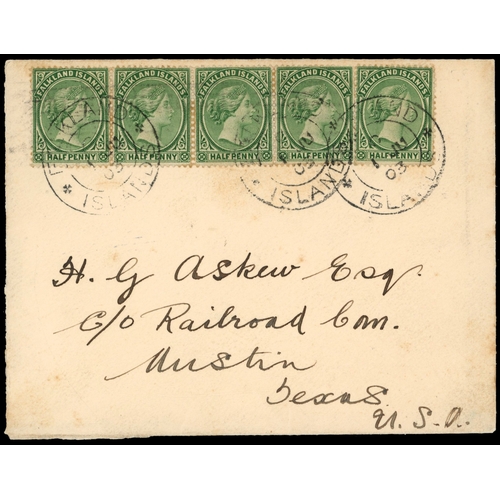 FALKLAND ISLANDS FALKLAND ISLANDS FALKLAND ISLANDS FALKLAND ISLANDS FALKLAND ISLANDS
HALF PENNY HALF PENNY HALF PENNY HALF PENNY HALF PENNY
FALKLAND ISLANDS
03
ISLANDS
03
ISLANDS
03
H. G Askew Esq.
C/o Railroad Com.
Austin
Texas
U.S.A.